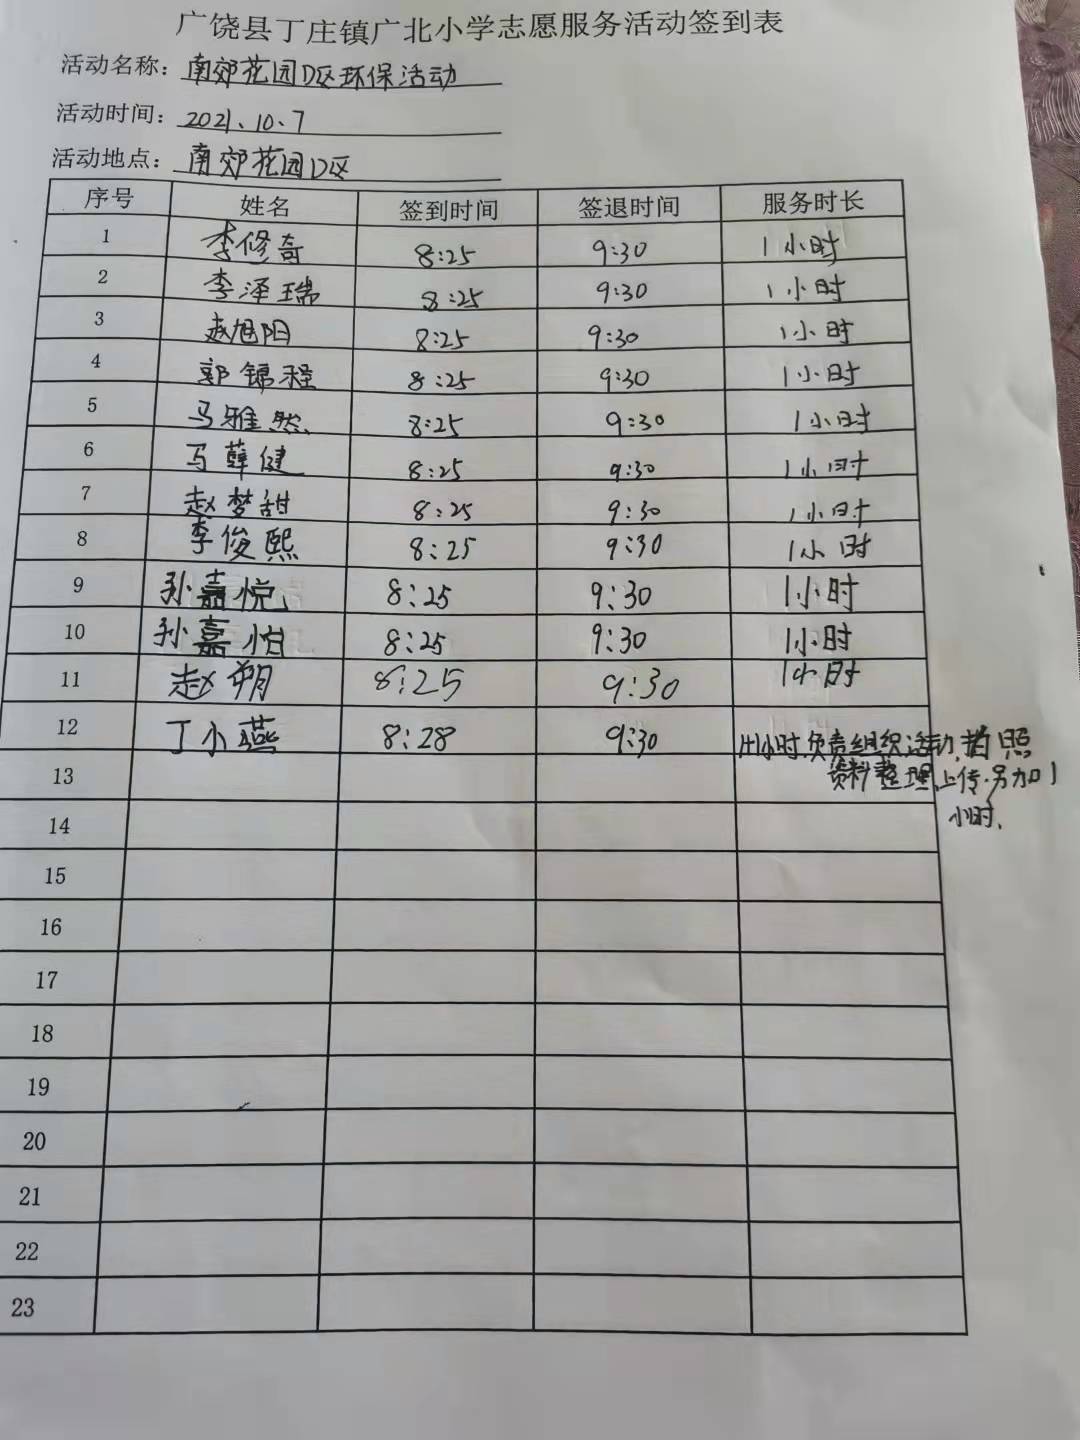 广饶县丁庄镇广北小学志愿服务活动签到表
活动名称：南郊花园D区环保活动
活动时间：2021、10、7
活动地点：南郊花园D区
序号 姓名 签到时间 签退时间 服务时长
1 李修奇 8:25 9:30 1小时
2 李泽瑞 8:25 9:30 1小时
3 赵旭阳 8:25 9:30 1小时
4 郭锦程 8:25 9:30 1小时
5 马雅然 8:25 9:30 1小时
6 马薛健 8:25 9:30 1小时
7 赵梦甜 8:25 9:30 1小时
8 李俊熙 8:25 9:30 1小时
9 孙嘉悦 8:25 9:30 1小时
10 孙嘉怡 8:25 9:30 1小时
11 赵朔 8:25 9:30 1小时
12 丁小燕 8:28 9:30 1+1小时.负责组织活动,拍照
资料整理、上传.另加1
小时.
13
14
15
16
17
18
19
20
21
22
23